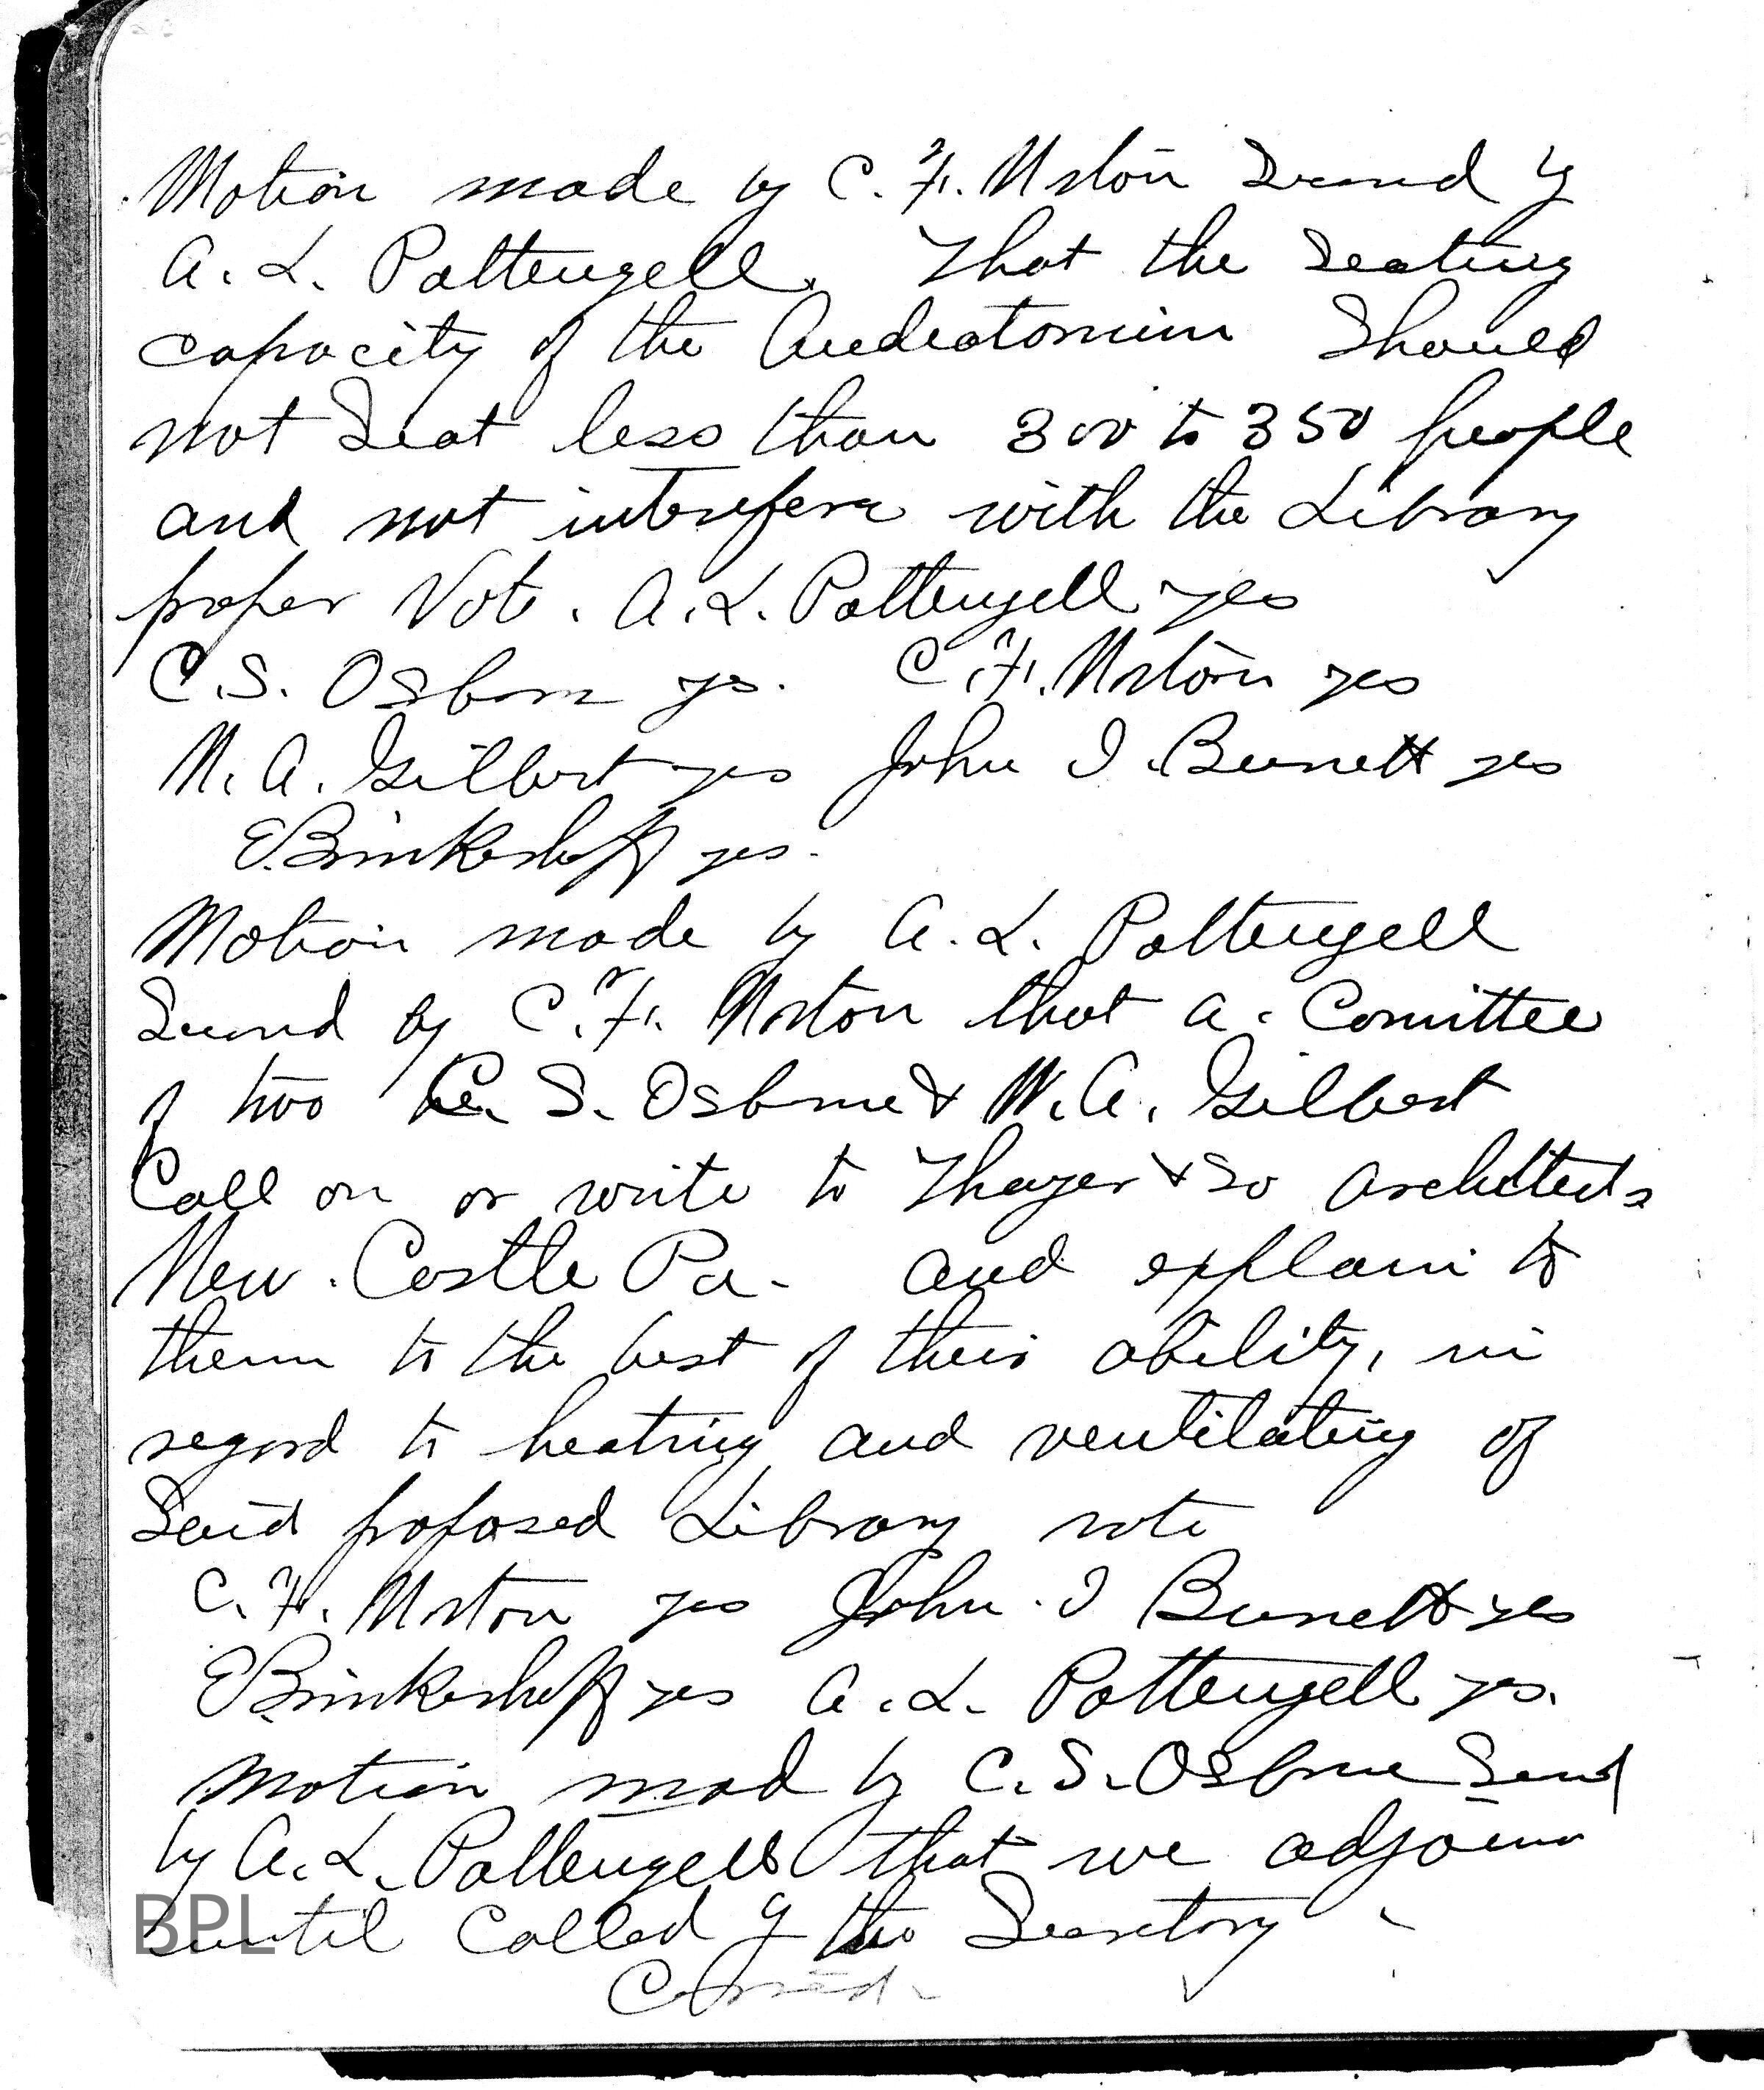 Motion made by C. F. Norton Second by
A. L. Pattengell. That the Seating
capacity of the Audiatorium Should
not Seat less than 300 to 350 people
and not interefere with the Library
proper Vote. A. L. Pattengell yes
C. S. Osborn yes. C. F. Norton yes
W. A. Gilbert yes John I. Burnett yes
E. Brinkerhoff yes.
Motion made by A. L. Pattengell
Second by C. F. Norton that a Comittee
of two C. S. Osborne & W. A. Gilbert
Call on or write to Thayer & Co Architects
New Castle Pa. and explain to
them to the best of their ability, in
regard to heating and ventilating of
Said proposed Library vote
C. F. Norton yes John I Burnett yes
E. Brinkerhoff yes A. L. Pattengell yes.
Motion mad by C. S. Osborne Second
by A. L. Pattengell that we adjourn
until Called by the Secretary
Carried.
BPL